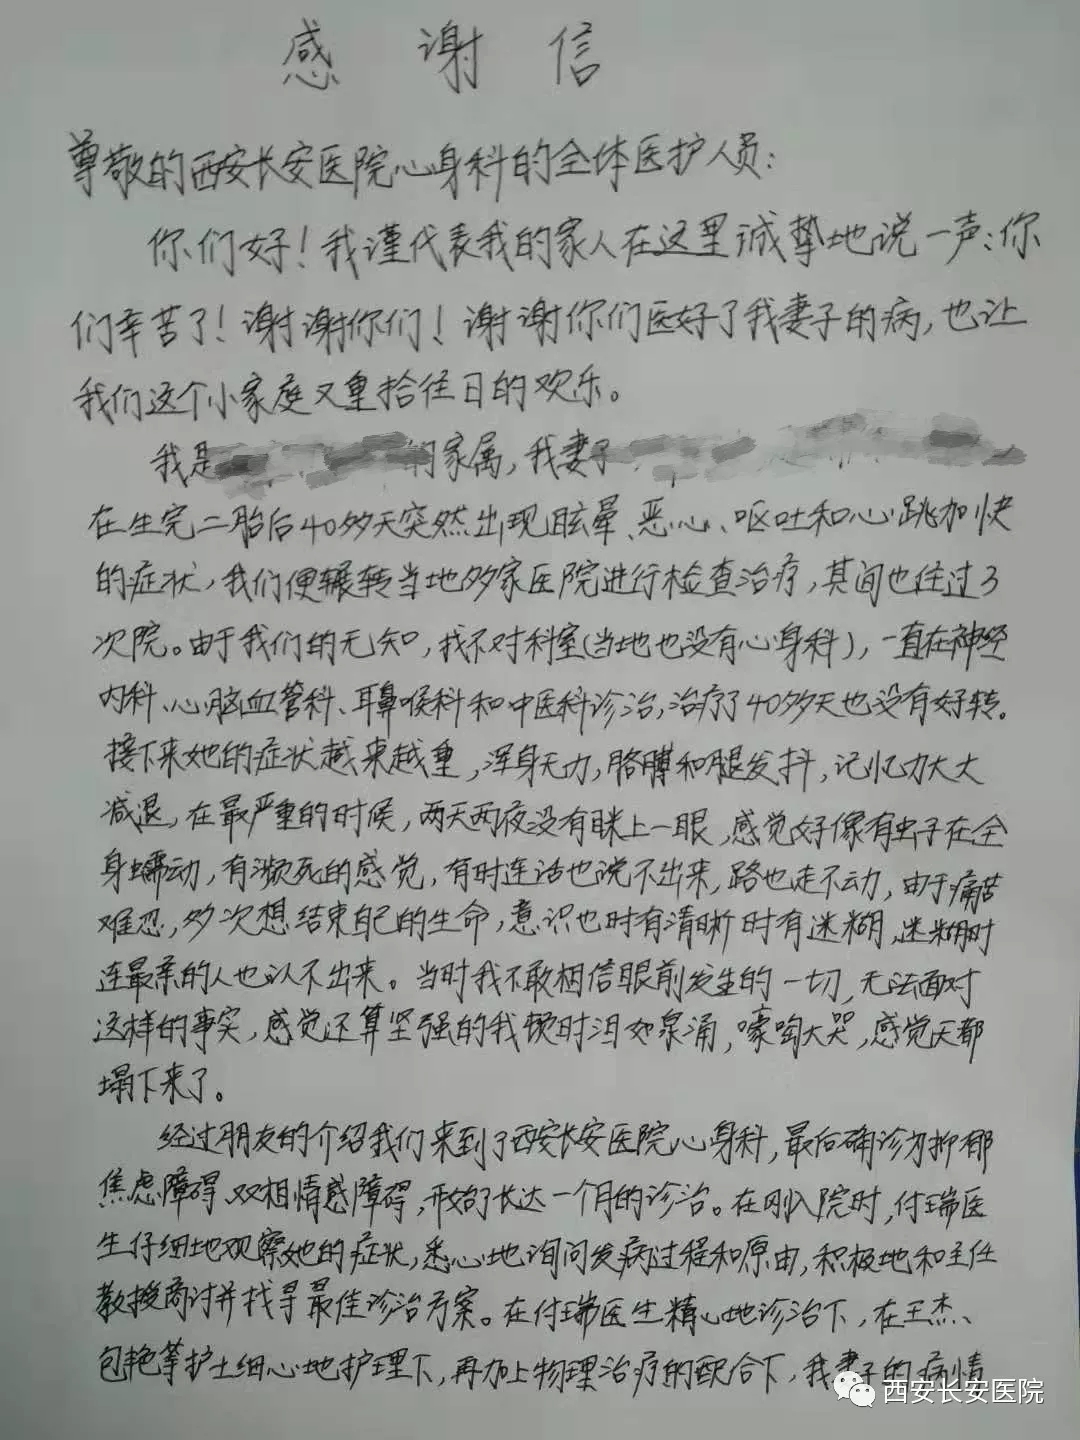 感谢信
尊敬的西安长安医院心身科的全体医护人员：
你们好！我谨代表我的家人在这里诚挚地说一声：你
们辛苦了！谢谢你们！谢谢你们医好了我妻子的病，也让
我们这个小家庭又重拾往日的欢乐。
我是 的家属，我妻子
在生完二胎后40多天突然出现眩晕、恶心、呕吐和心跳加快
的症状，我们便辗转当地多家医院进行检查治疗，其间也住过3
次院。由于我们的无知，找不对科室(当地也没有心身科)，一直在神经
内科、心脑血管科、耳鼻喉科和中医科诊治，治疗了40多天也没有好转。
接下来她的症状越来越重，浑身无力，胳膊和腿发抖，记忆力大大
减退，在最严重的时候，两天两夜没有眯上一眼，感觉好像有虫子在全
身蠕动，有濒死的感觉，有时连话也说不出来，路也走不动，由于痛苦
难忍，多次想结束自己的生命，意识也时有清晰时有迷糊，迷糊时
连最亲的人也认不出来。当时我不敢相信眼前发生的一切，无法面对
这样的事实，感觉还算坚强的我顿时泪如泉涌，嚎啕大哭，感觉天都
塌下来了。
经过朋友的介绍我们来到了西安长安医院心身科，最后确诊为抑郁
焦虑障碍、双相情感障碍，开始了长达一个月的诊治。在刚入院时，付瑞医
生仔细地观察她的症状，悉心地询问发病过程和原由，积极地和主任
教授商讨并找寻最佳诊治方案。在付瑞医生精心地诊治下，在王杰、
包艳等护士细心地护理下，再加上物理治疗的配合下，我妻子的病情
西安长安医院